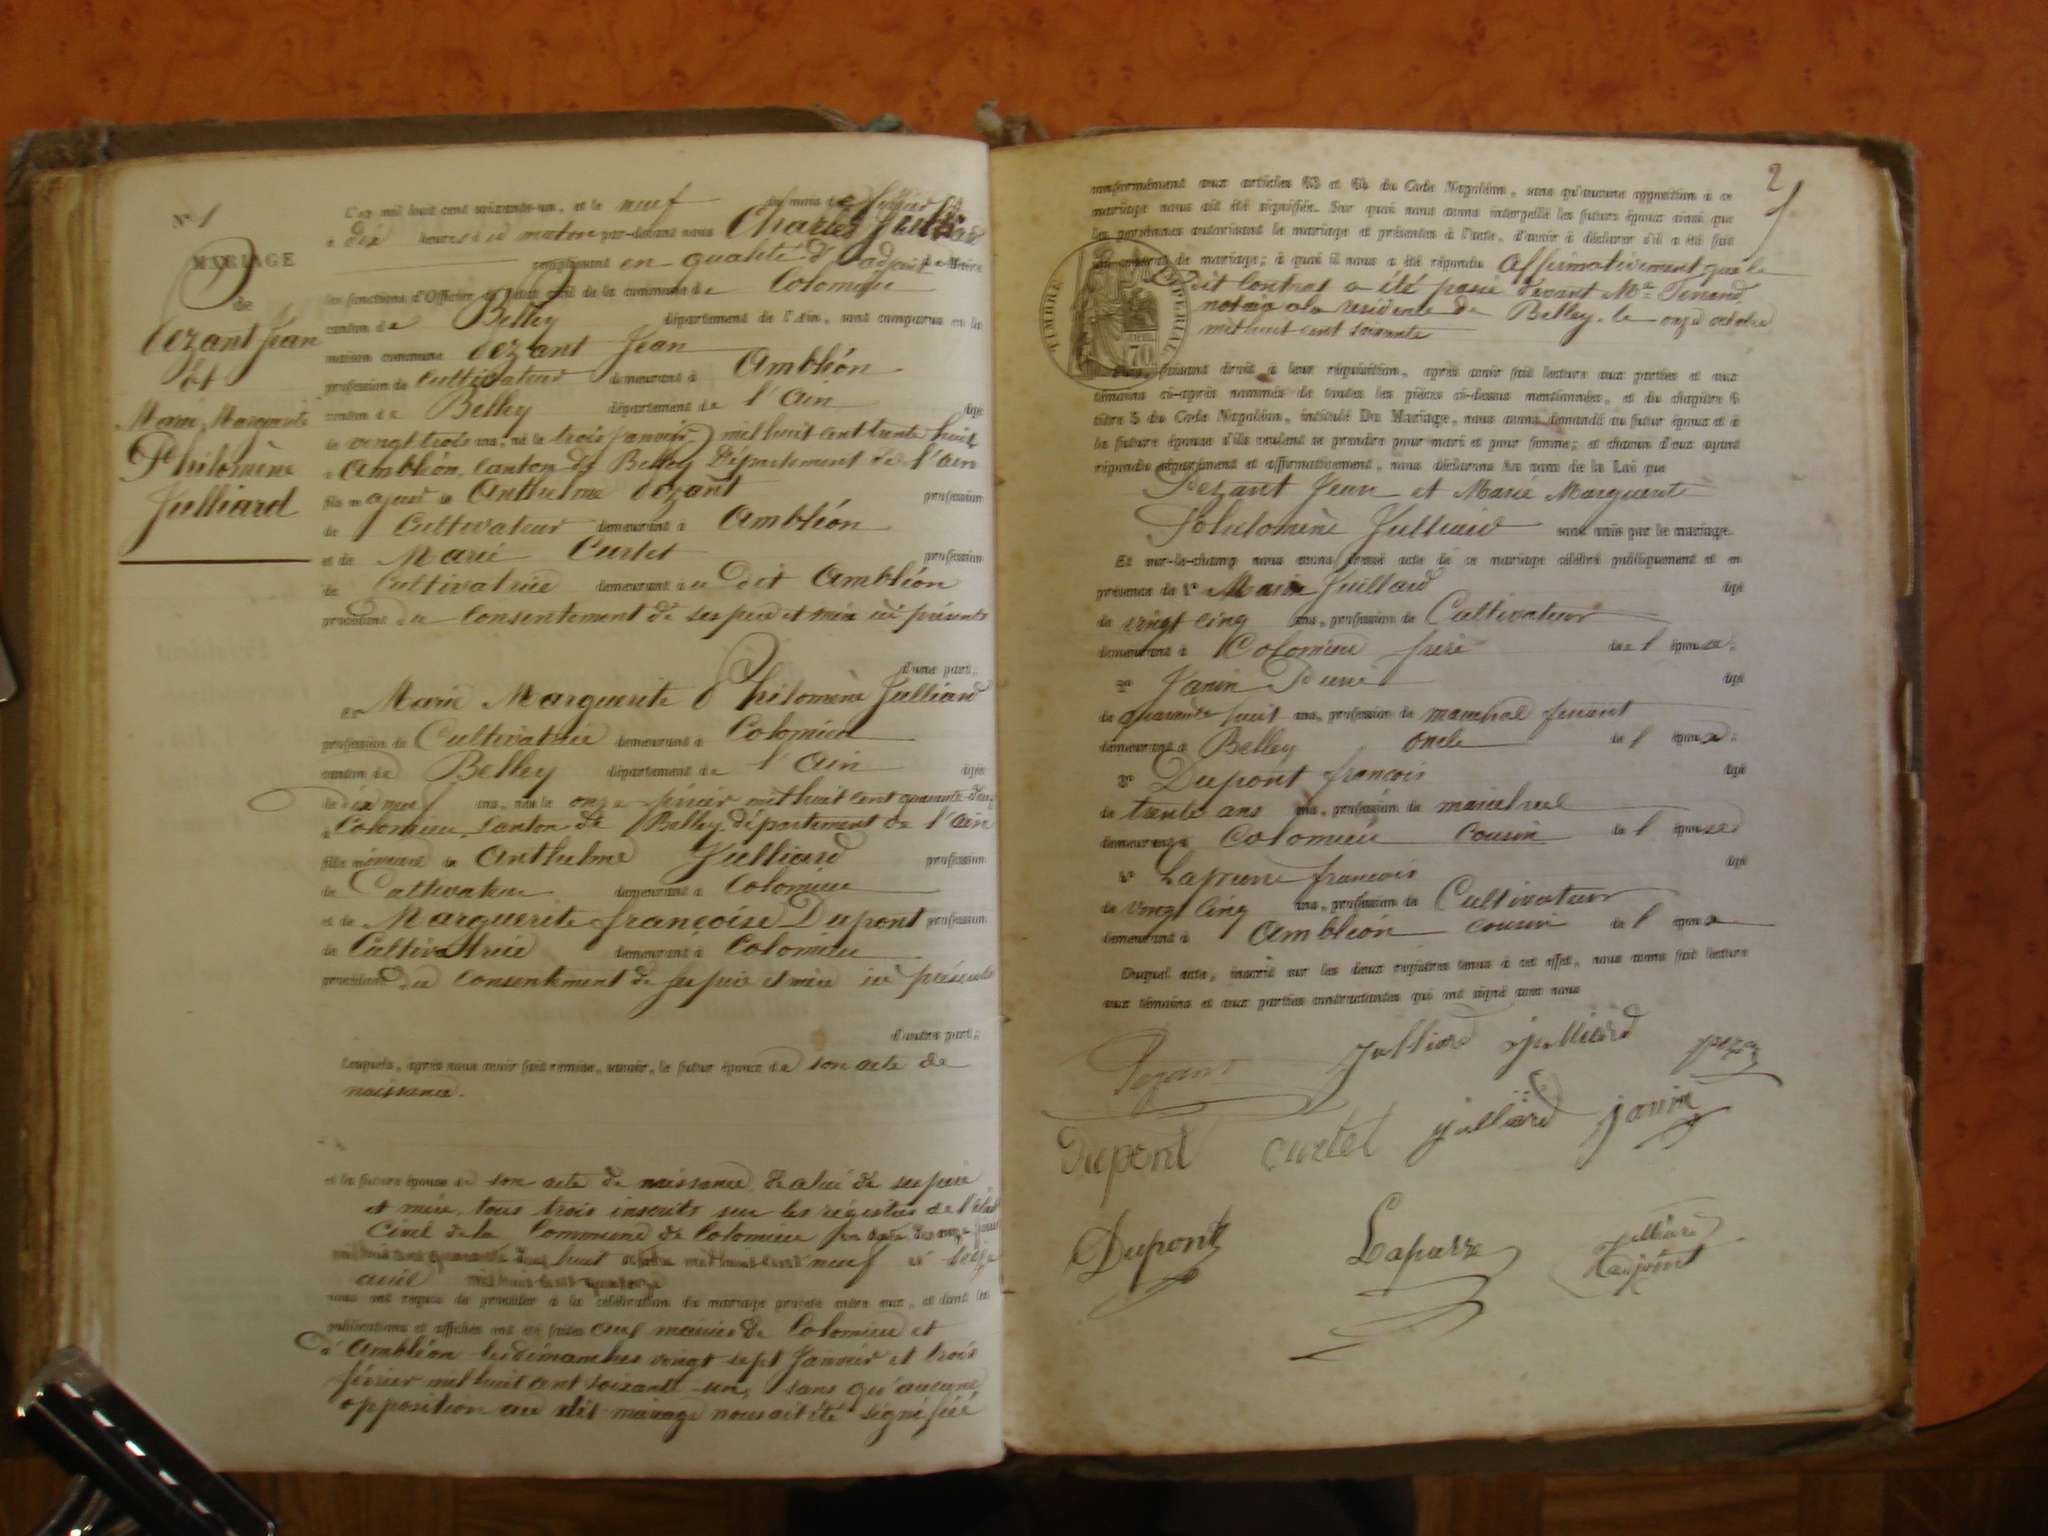 N° 1
MARIAGE
de
Pezant Jean
et
Marie Marguerite
Philomène
Julliard
L'an mil huit cent soixante-un, et le neuf du mois de février
à dix heures du matin par-devant nous Charles Julliard
remplissant en qualité d'adjoint le Maire
les fonctions d'Officier de l'état civil de la commune de Colomieu
canton de Belley département de l'Ain, sont comparus en la
maison commune Pezant Jean
profession de Cultivateur demeurant à Ambléon
canton de Belley département de l'Ain âgé
de vingt trois ans, né le trois janvier mil huit cent trente huit
à Ambléon, canton de Belley Département de l'Ain
fils majeur de Anthelme Pezant profession
de Cultivateur demeurant à Ambléon
et de Marie Curtet profession
de Cultivatrice demeurant au dit Ambléon
procédant du consentement de ses père et mère ici présents
d'une part;
et Marie Marguerite Philomène Julliard
profession de Cultivatrice demeurant à Colomieu
canton de Belley département de l'Ain âgée
de dix neuf ans, née le onze février mil huit cent quarante-deux
à Colomieu, canton de Belley, département de l'Ain
fille mineure de Anthelme Julliard profession
de Cultivateur demeurant à Colomieu
et de Marguerite françoise Dupont profession
de Cultivatrice demeurant à Colomieu
procédant du consentement de ses père et mère ici présents
d'autre part;
Lesquels, après nous avoir fait remise, savoir, le futur époux de son acte de
naissance.
et la future épouse de son acte de naissance, de celui de ses père
et mère, tous trois inscrits sur les régistres de l'état
Civil de la Commune de Colomieu
huit mil huit cent neuf et
avril
nous ont requis de procéder à la célébration du mariage projeté entre eux, et dont les
publications et affiches ont été faites aux mairies de Colomieu et
à Ambléon les dimanches vingt sept janvier et trois
février mil huit cent soixante-un, sans qu'aucune
opposition au dit mariage nous ait été signifiée
2
conformément aux articles 63 et 64 du Code Napoléon, sans qu'aucune opposition à ce
mariage nous ait été signifiée. Sur quoi nous avons interpellé les futurs époux ainsi que
les personnes autorisant le mariage et présentes à l'acte, d'avoir à déclarer s'il a été fait
un contrat de mariage; à quoi il nous a été répondu affirmativement que le
dit contrat a été passé devant Me
notaire à la résidence de Belley, le onze octobre
mil huit cent soixante
TIMBRE IMPERIAL
70
Nous, faisant droit à leur réquisition, après avoir fait lecture aux parties et aux
témoins ci-après nommés de toutes les pièces ci-dessus mentionnées, et du chapitre 6
titre 5 du Code Napoléon, intitulé Du Mariage, nous avons demandé au futur époux et à
la future épouse s'ils veulent se prendre pour mari et pour femme; et chacun d'eux ayant
répondu séparément et affirmativement, nous déclarons au nom de la Loi que
Pezant Jean et Marie Marguerite
Philomène Julliard sont unis par le mariage.
Et sur-le-champ nous avons dressé acte de ce mariage célébré publiquement et en
présence de 1° Julliard âgé
de vingt cinq ans, profession de Cultivateur
demeurant à Colomieu frère de l'épouse;
2° Janin Pierre âgé
de quarante huit ans, profession de maréchal ferrant
demeurant à Belley oncle de l'épouse;
3° Dupont françois âgé
de trente ans ans, profession de maréchal
demeurant à Colomieu cousin de l'épouse
4° françois âgé
de vingt cinq ans, profession de Cultivateur
demeurant à Ambléon cousin de l'époux
Duquel acte, inscrit sur les deux registres tenus à cet effet, nous avons fait lecture
aux témoins et aux parties contractantes qui ont signé avec nous
Pezant julliard julliard
Dupont curtet julliard janin
Dupont julliard
adjoint